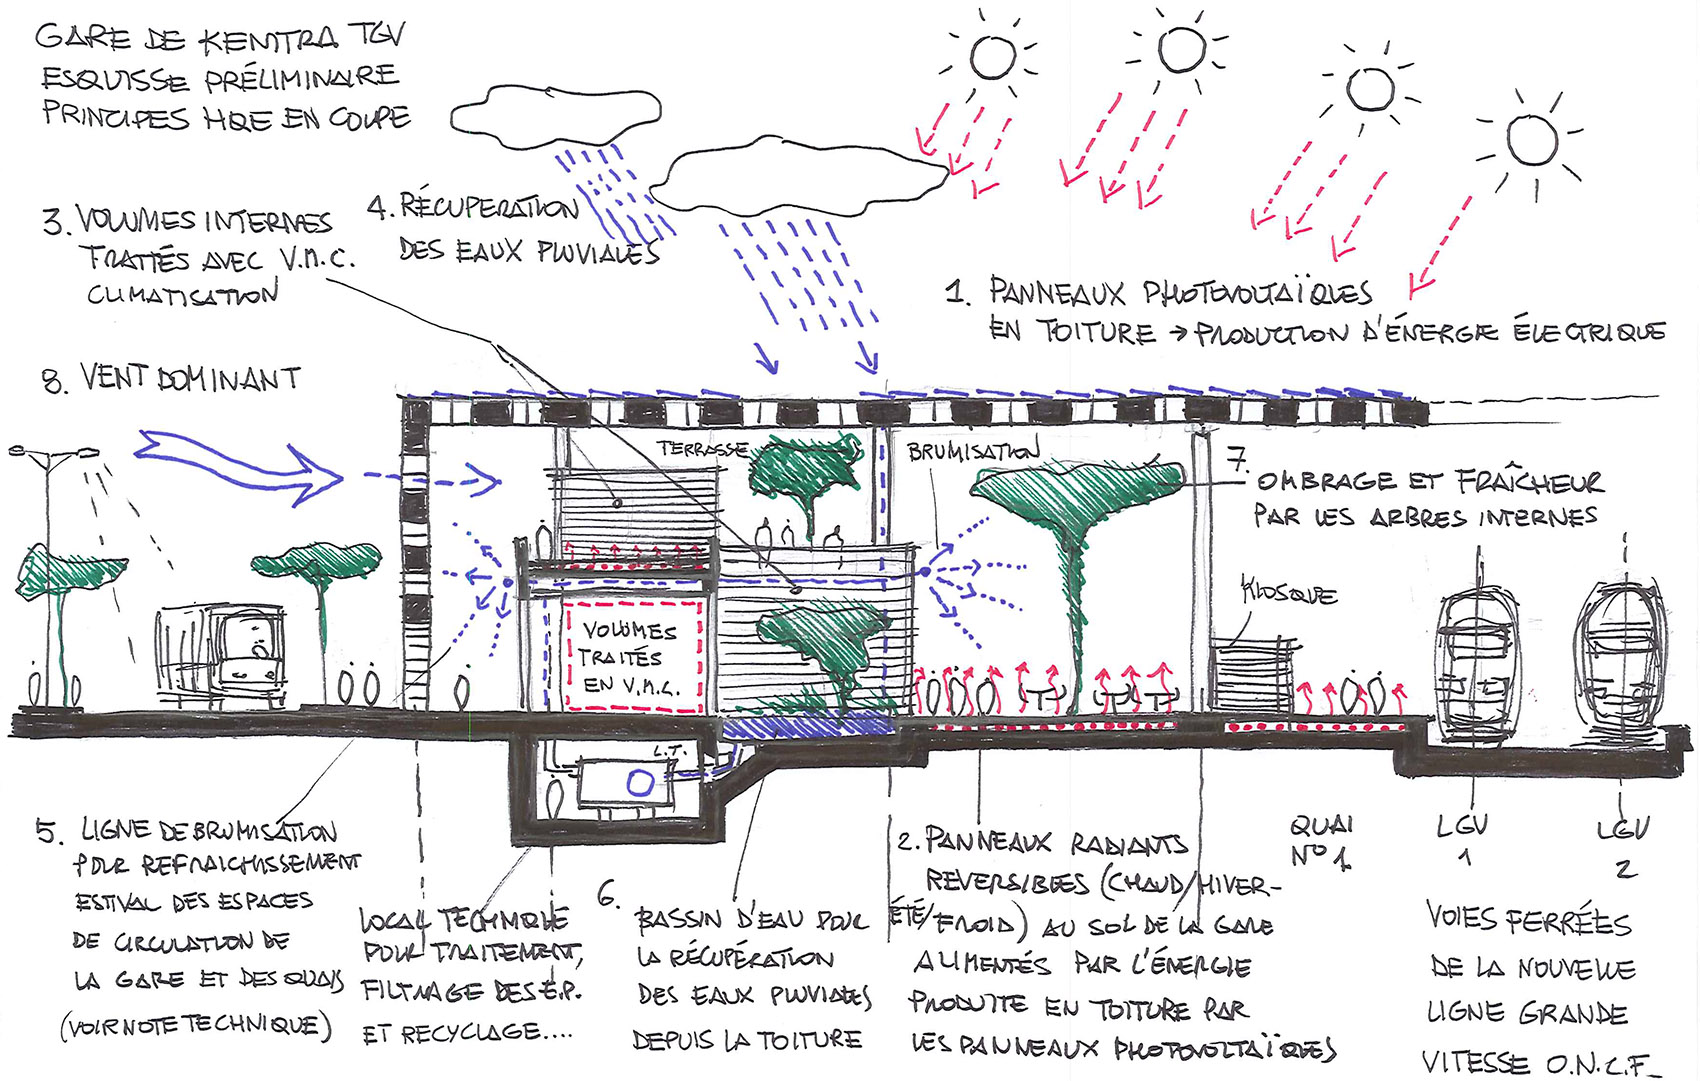 GARE DE KENITRA TGV
ESQUISSE PRÉLIMINAIRE
PRINCIPES HQE EN COUPE
3. VOLUMES INTERNES
TRAITÉS AVEC V.M.C.
CLIMATISATION
4. RÉCUPERATION
DES EAUX PLUVIALES
1. PANNEAUX PHOTOVOLTAÏQUES
EN TOITURE → PRODUCTION D'ÉNERGIE ÉLECTRIQUE
8. VENT DOMINANT
TERRASSE
BRUMISATION
7. OMBRAGE ET FRAÎCHEUR
PAR LES ARBRES INTERNES
KIOSQUE
VOLUMES
TRAITÉS
EN V.M.C.
L.T.
5. LIGNE DE BRUMISATION
POUR REFRAICHISSEMENT
ESTIVAL DES ESPACES
DE CIRCULATION DE
LA GARE ET DES QUAIS
(VOIR NOTE TECHNIQUE)
LOCAL TECHNIQUE
POUR TRAITEMENT,
FILTRAGE DES E.P.
ET RECYCLAGE....
6. BASSIN D'EAU POUR
LA RÉCUPÉRATION
DES EAUX PLUVIALES
DEPUIS LA TOITURE
2. PANNEAUX RADIANTS
REVERSIBLES (CHAUD/HIVER-
ÉTÉ/FROID) AU SOL DE LA GARE
ALIMENTÉS PAR L'ÉNERGIE
PRODUITE EN TOITURE PAR
LES PANNEAUX PHOTOVOLTAÏQUES
QUAI
N° 1
LGV
1
LGV
2
VOIES FERRÉES
DE LA NOUVELLE
LIGNE GRANDE
VITESSE O.N.C.F.